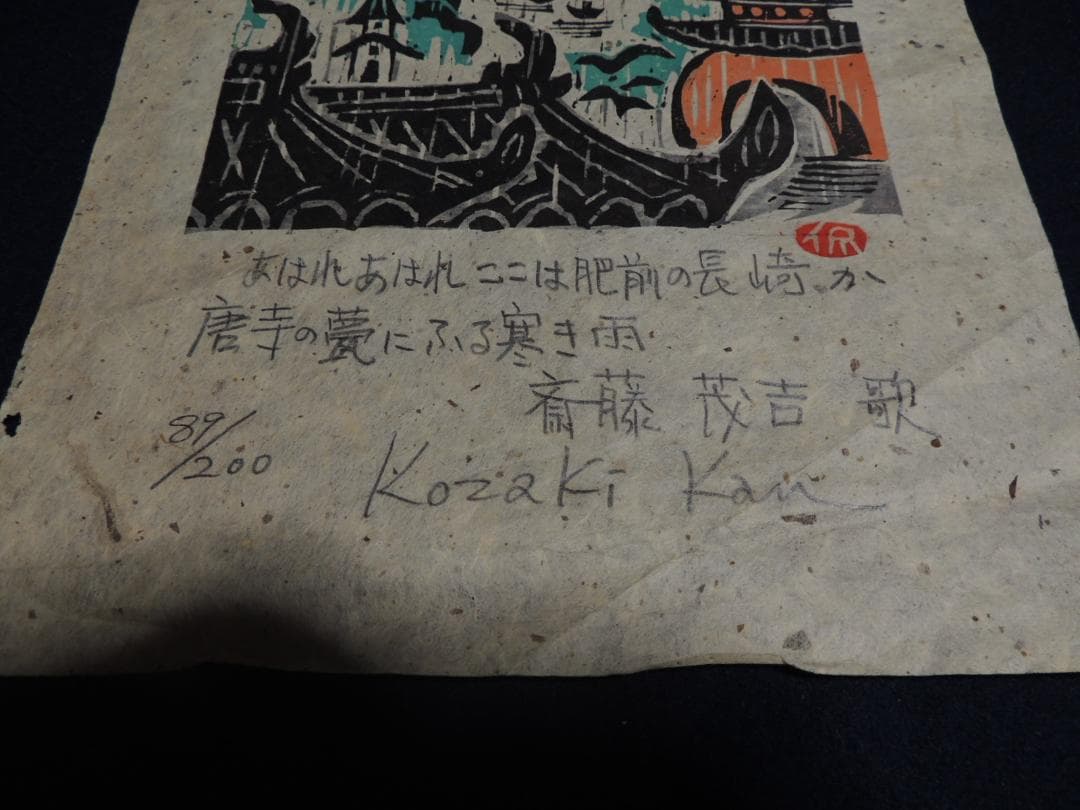 侃
あはれあはれここは肥前の長崎か
唐寺の甍にふる寒き雨
斎藤 茂吉 歌
89/200
Kozaki Kan